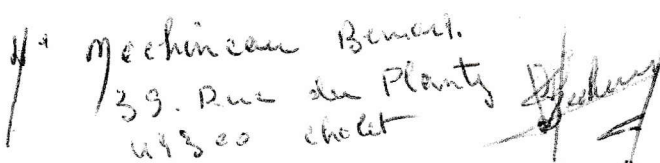 Mr Mechineau Bernard.
39. Rue du Planty
49300 cholet